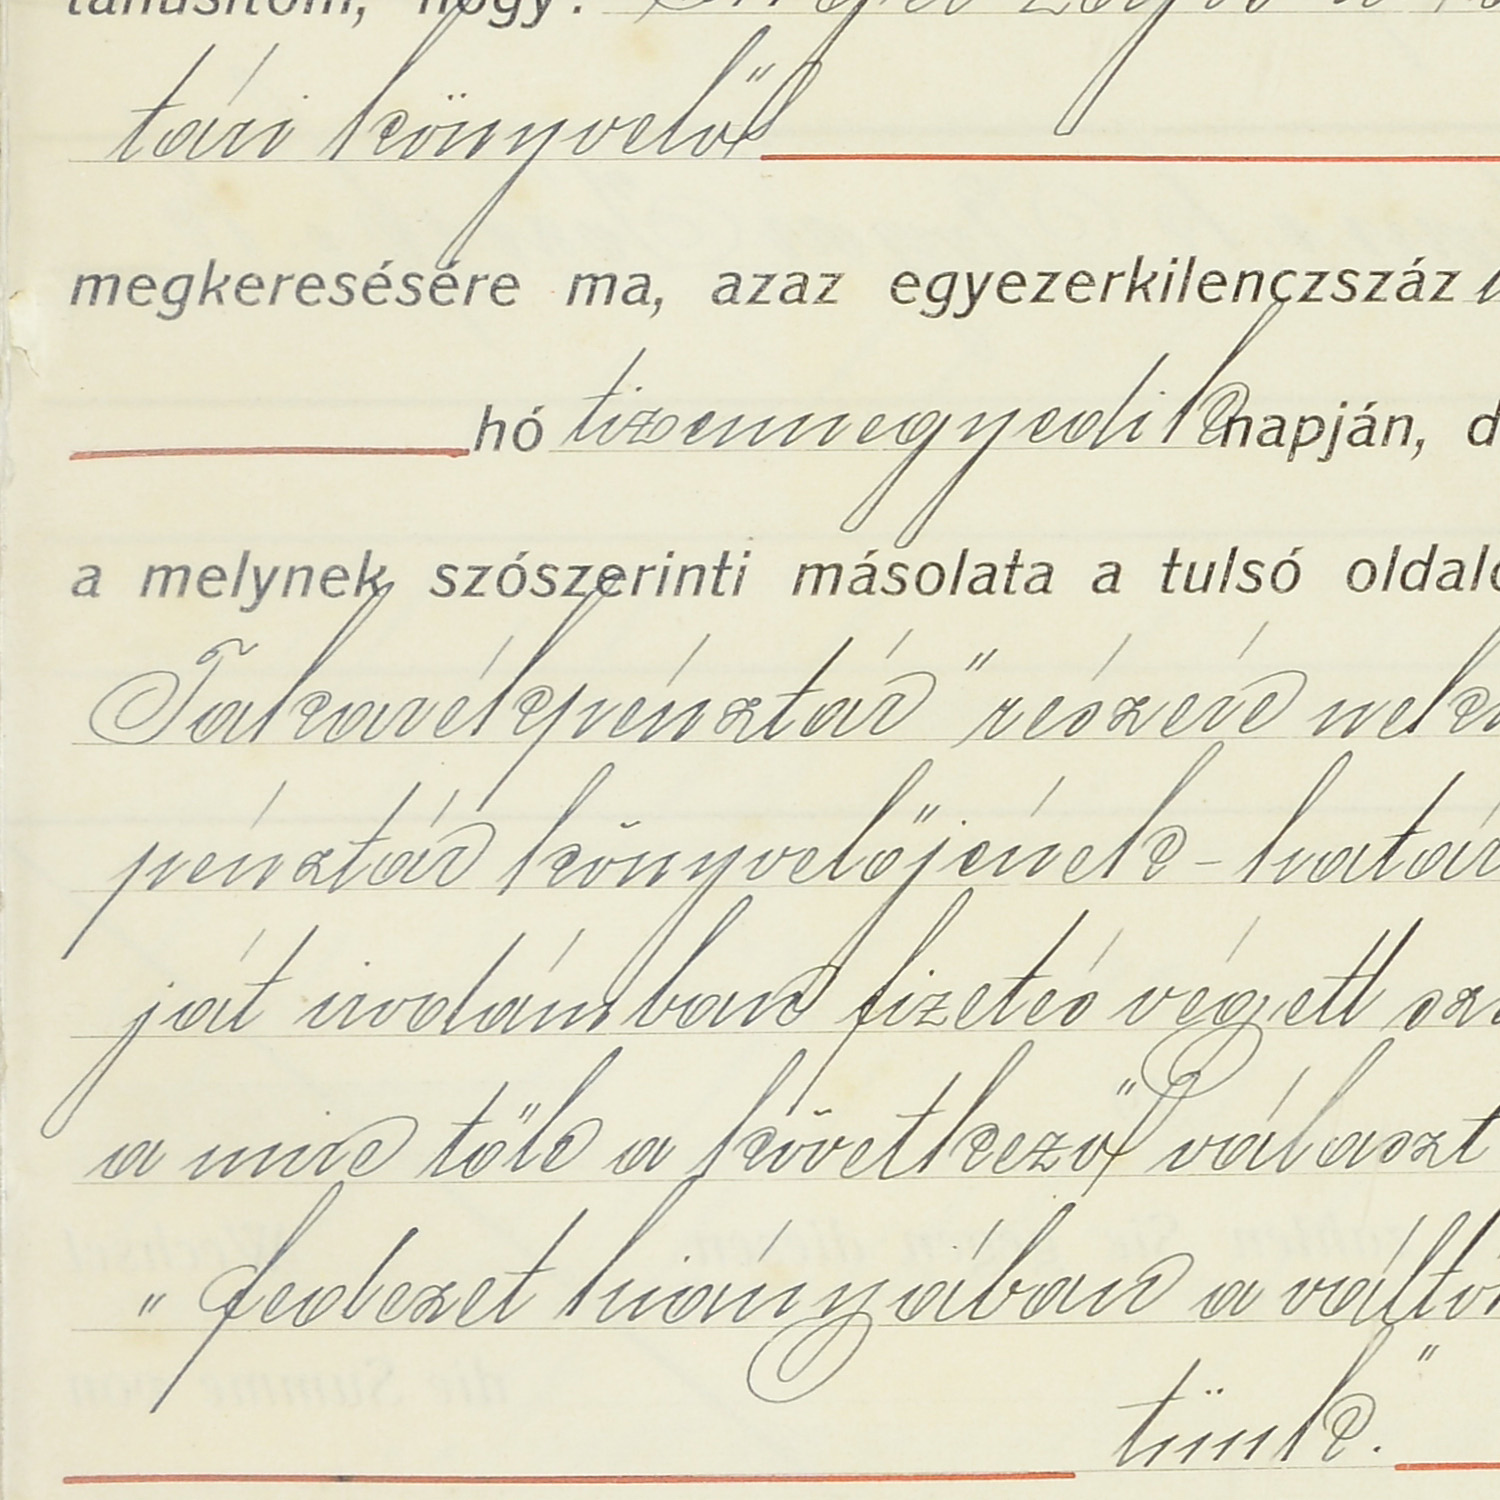 tanúsítom, hogy:
tári könyvelő
megkeresésére ma, azaz egyezerkilenczszáz
hó tizennegyedik napján,
a melynek szószerinti másolata a tulsó
Takarékpénztár" részére
pénztár könyvelőjének -
ját irodámban fizetés végett
a mire tőle a következő választ
„fedezet hiányában a
tünk."